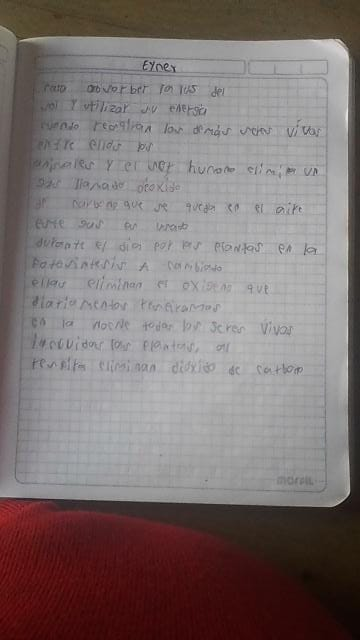 Eyner
para absorber la lus del
sol y utilizar su energia
cuando respiran los demás seres vivos
entre ellos los
animales y el ser humano eliminan un
gas llamado dioxido
de carbono que se queda en el aire
este gas es usado
durante el dia por las plantas en la
fotosintesis A cambiado
ellas eliminan es oxigeno que
diariamentos respiramos
en la noche todos los seres vivos
incluidas las plantas, al
respirar eliminan dióxido de carbono